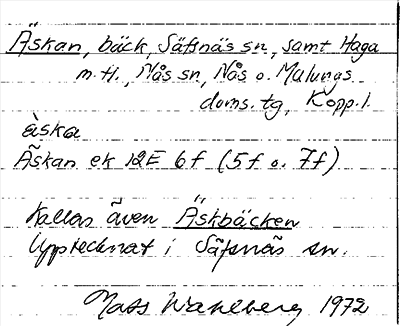 Äskan, bäck, Säfsnäs sn, samt Haga
m.fl., Nås sn, Nås o. Malungs
doms. tg, Kopp. l.
äska
Äskan ek 12E 6f (5f o. 7f)
Kallas även Äskbäcken
Upptecknat i Säfsnäs sn.
Mats Wahlberg 1972